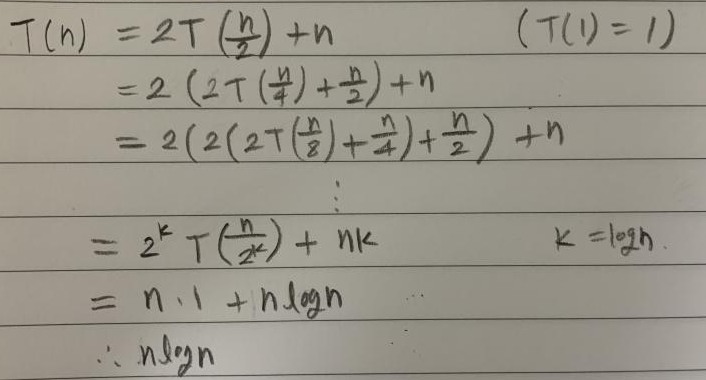 T(n) = 2T(n/2) + n (T(1) = 1)
= 2(2T(n/4) + n/2) + n
= 2(2(2T(n/8) + n/4) + n/2) + n
⋮
= 2^k T(n/2^k) + nk k = logn.
= n · 1 + nlogn
∴ nlogn